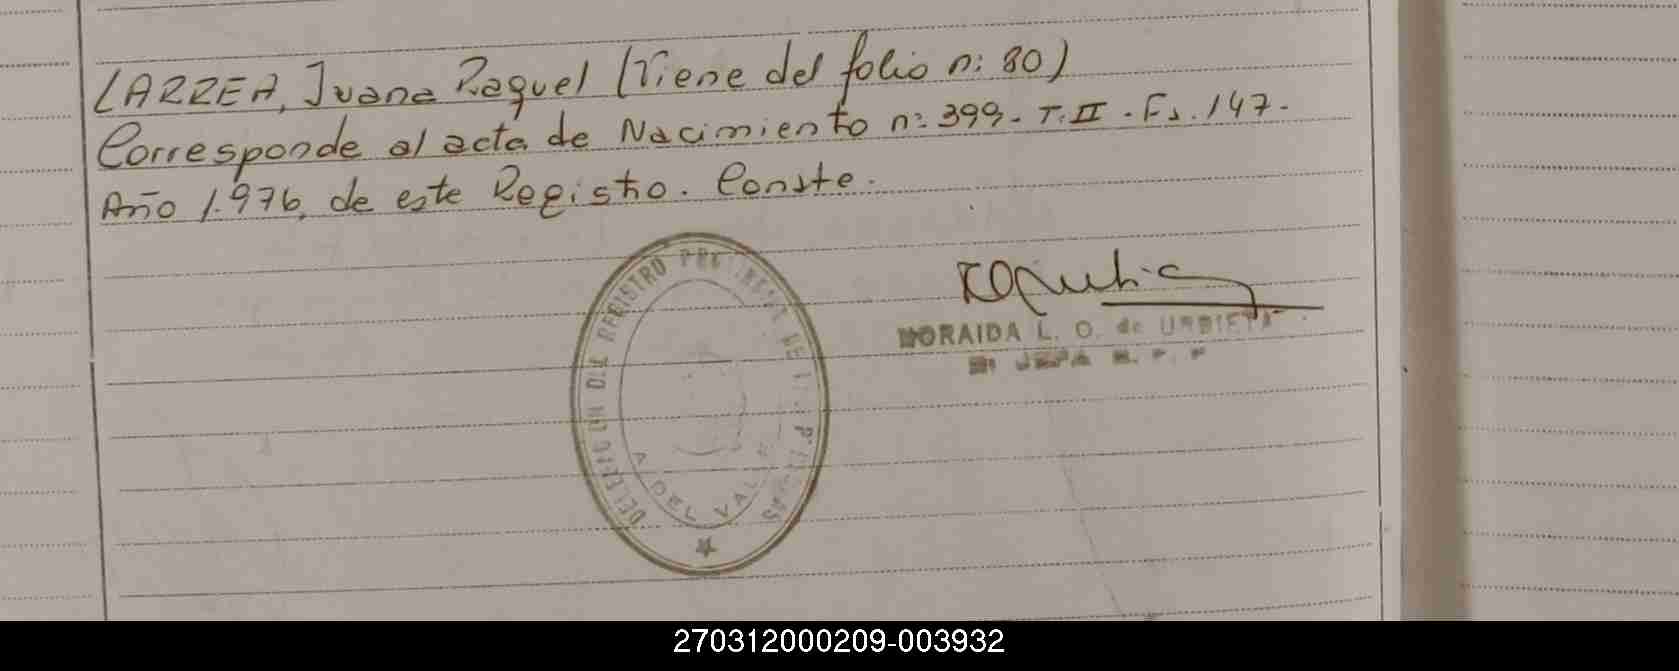 LARREA, Juana Raquel (Viene del folio n: 80)
Corresponde al acta de Nacimiento n: 399 - T.II - Fs. 147 -
Año 1.976, de este Registro. Conste.
NORAIDA L. O. de URBIETA
JEFA
DEL REGISTRO
DEL VALLE
270312000209-003932